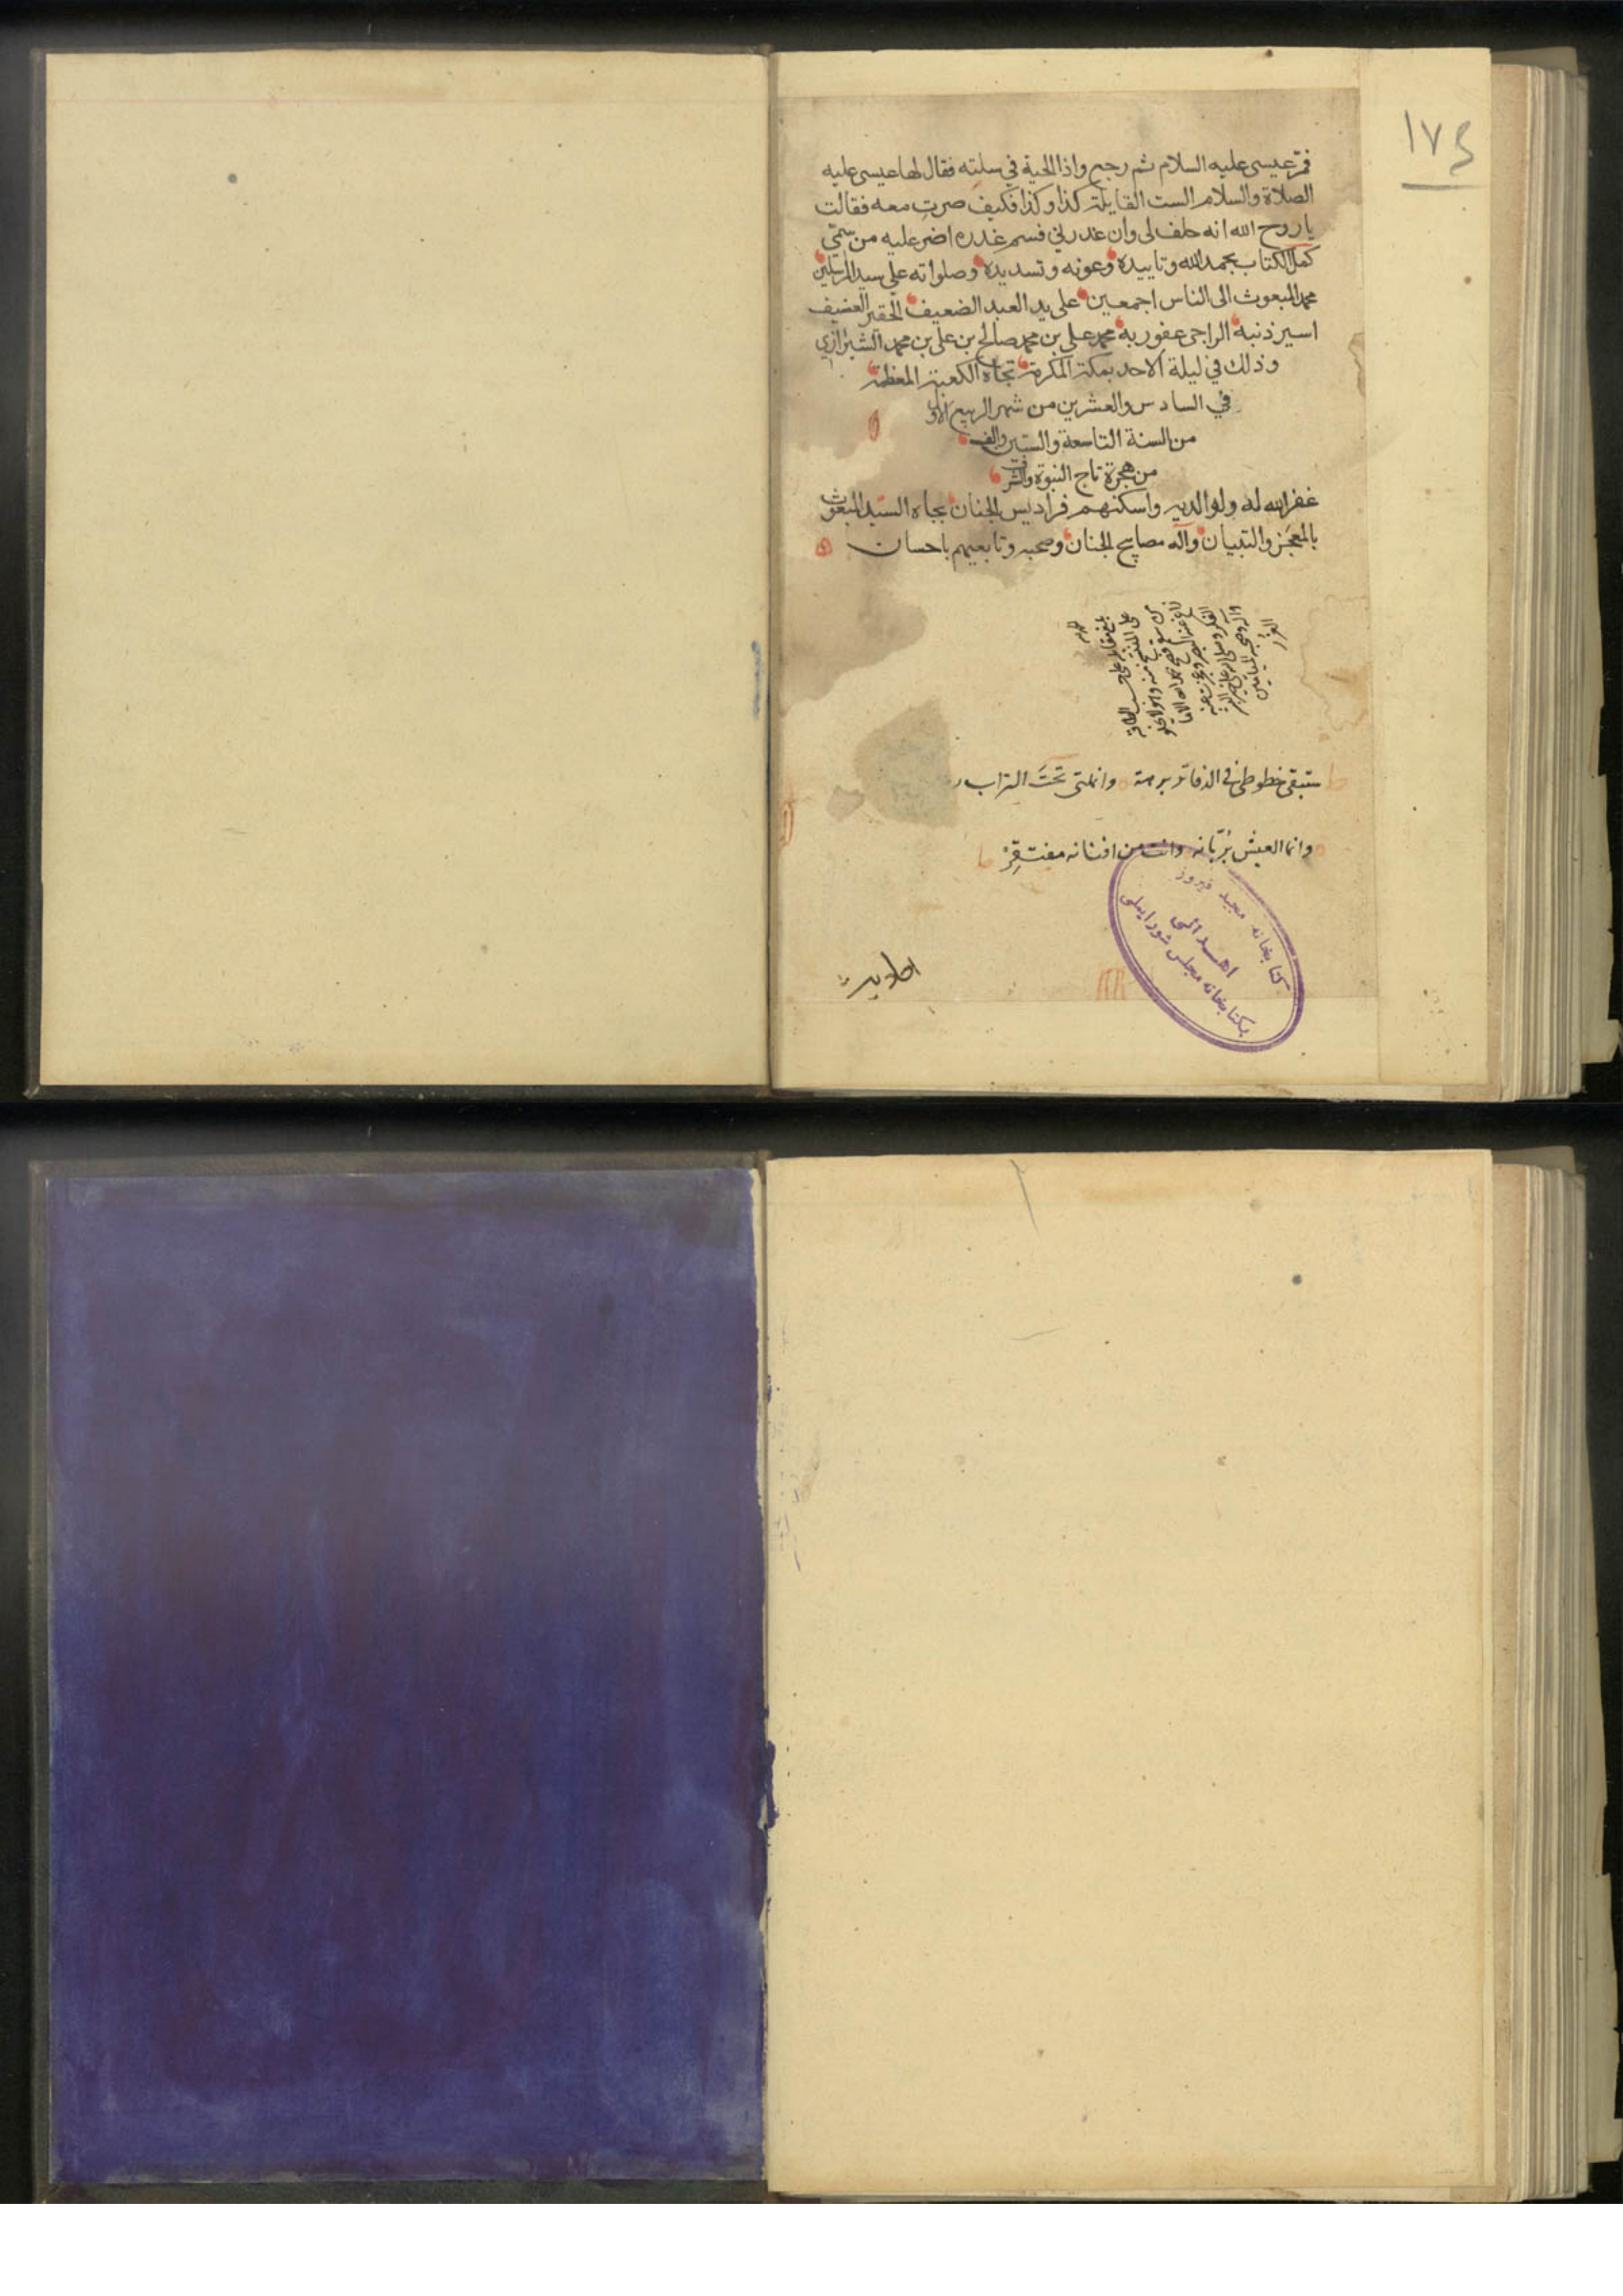 ١٧٤
فمرّ عيسى عليه السلام ثم رجع واذا الحية في سلته فقال لها عيسى عليه
الصلاة والسلام الست القايلة كذا وكذا فكيف صرت معه فقالت
يا روح الله انه حلف لي وان غدرني فسم غدره اضر عليه من سمّي
كمل الكتاب بحمد الله وتاييده وعونه وتسديده وصلواته على سيد المرسلين
محمد المبعوث الى الناس اجمعين على يد العبد الضعيف الحقير
اسير ذنبه الراجي عفو ربه محمد علي بن محمد صالح بن علي بن محمد الشيرازي
وذلك في ليلة الاحد بمكة المكرمة تجاه الكعبة المعظمة
في السادس والعشرين من شهر الربيع الاول
من السنة التاسعة والستين والف
من هجرة تاج النبوة والشرف
غفر الله له ولوالديه واسكنهم فراديس الجنان بجاه السيد المبعوث
بالمعجز والتبيان وآله مصابيح الجنان وصحبه وتابعيهم باحسان
ستبقى خطوطي في الدفاتر برهة وانملتي تحت التراب
وانما العيش بربّانه وانت من افنانه مفتقر
كتابخانه مجيد فيروز
اهدائى
بكتابخانه مجلس شورايملى